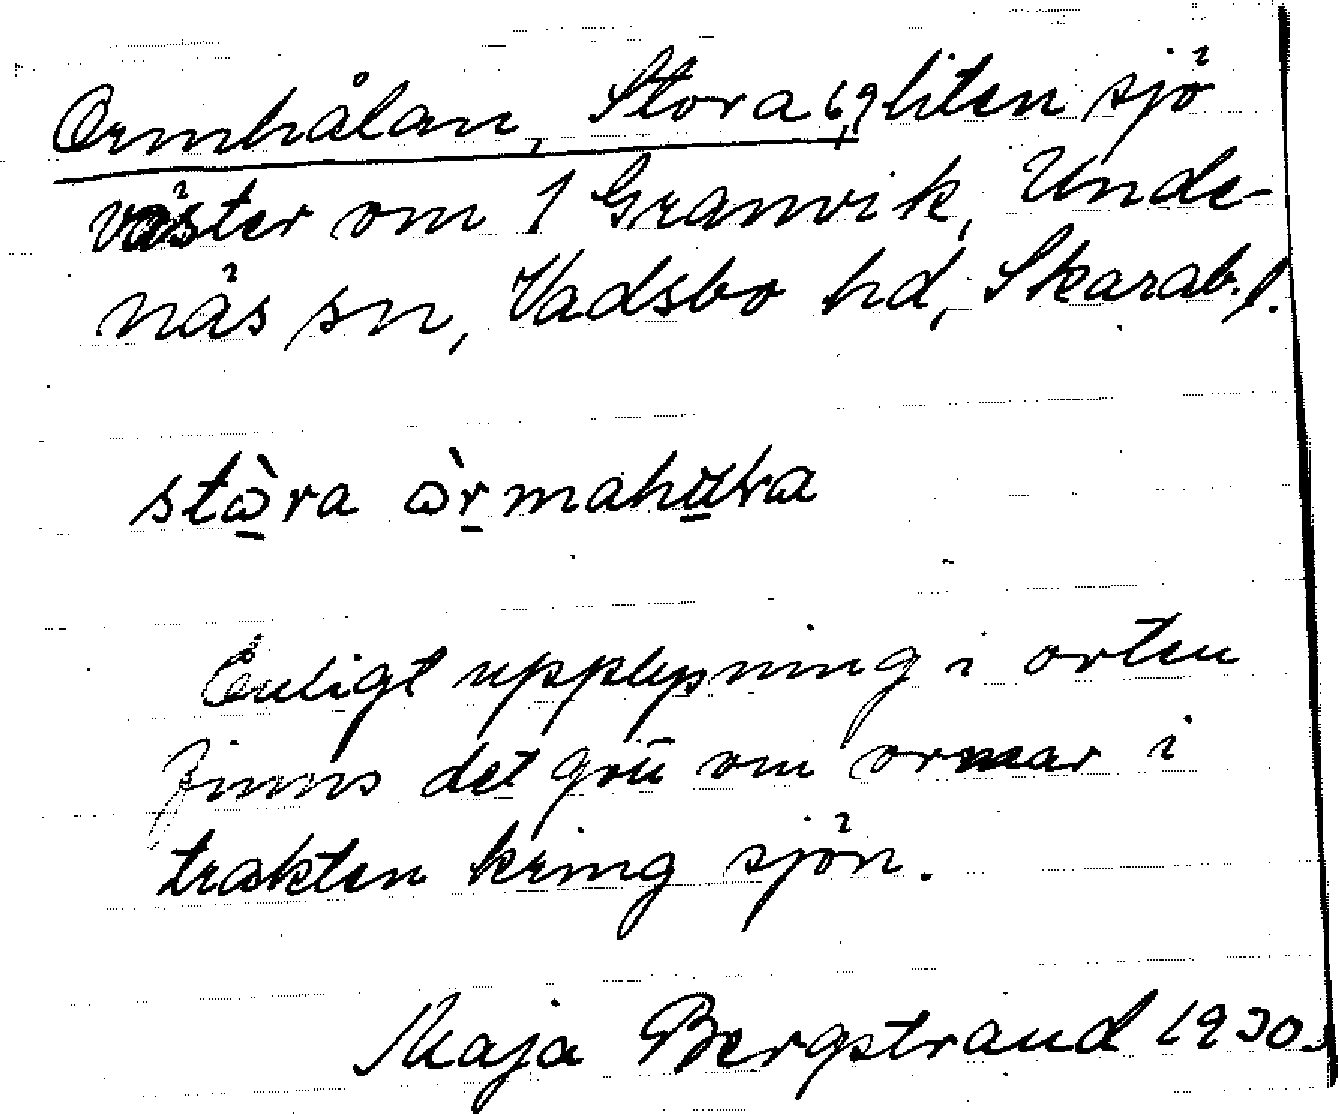 Ormhålan, Stora, 69 liten sjö
väster om 1 Granvik, Unde-
näs sn, Vadsbo hd, Skarab. l.
stora ormahåla
Enligt upplysning i orten
finns det gott om ormar i
trakten kring sjön.
Maja Bergstrand 1930.